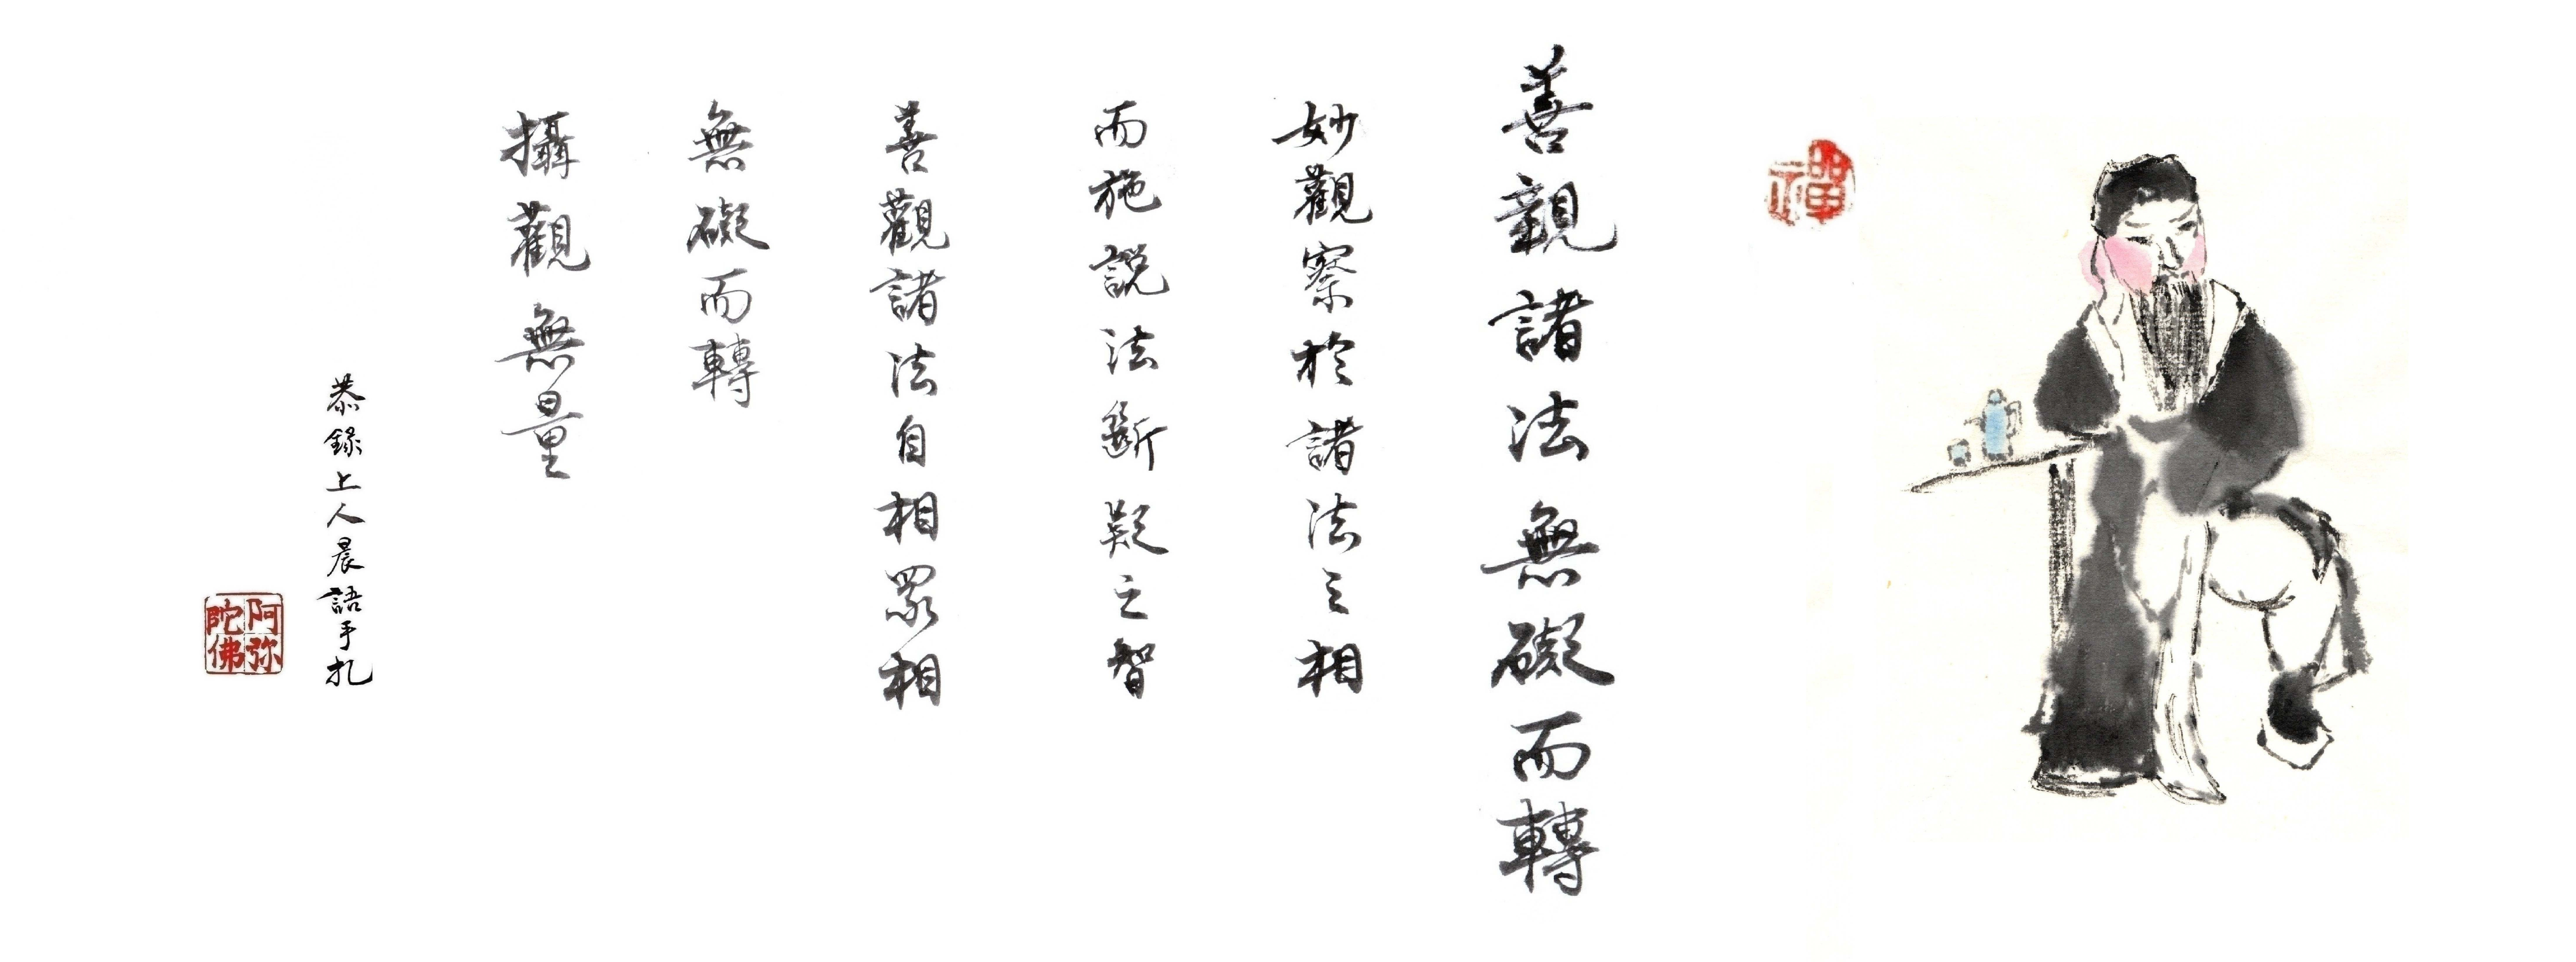 禪
善親諸法無礙而轉
妙觀察於諸法之相
而施説法斷疑之智
善觀諸法自相眾相
無礙而轉
攝觀無量
恭錄上人晨語手札
阿弥陀佛